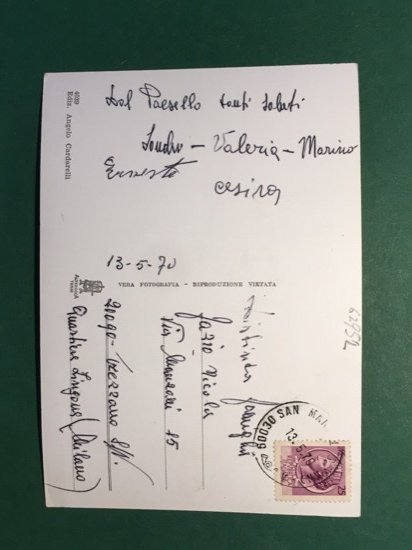 Dal Paesello tanti saluti
Sandro - Valeria - Marino
Ernesto
Cesira
13-5-70
4029
Ediz. Angelo Cardarelli
VERA FOTOGRAFIA - RIPRODUZIONE VIETATA
Famiglia
Nicola
Via Manzoni 15
20090 - Trezzano S/N.
Quartiere Zingone (Milano)
62952
60030 SAN MA
13-5
25